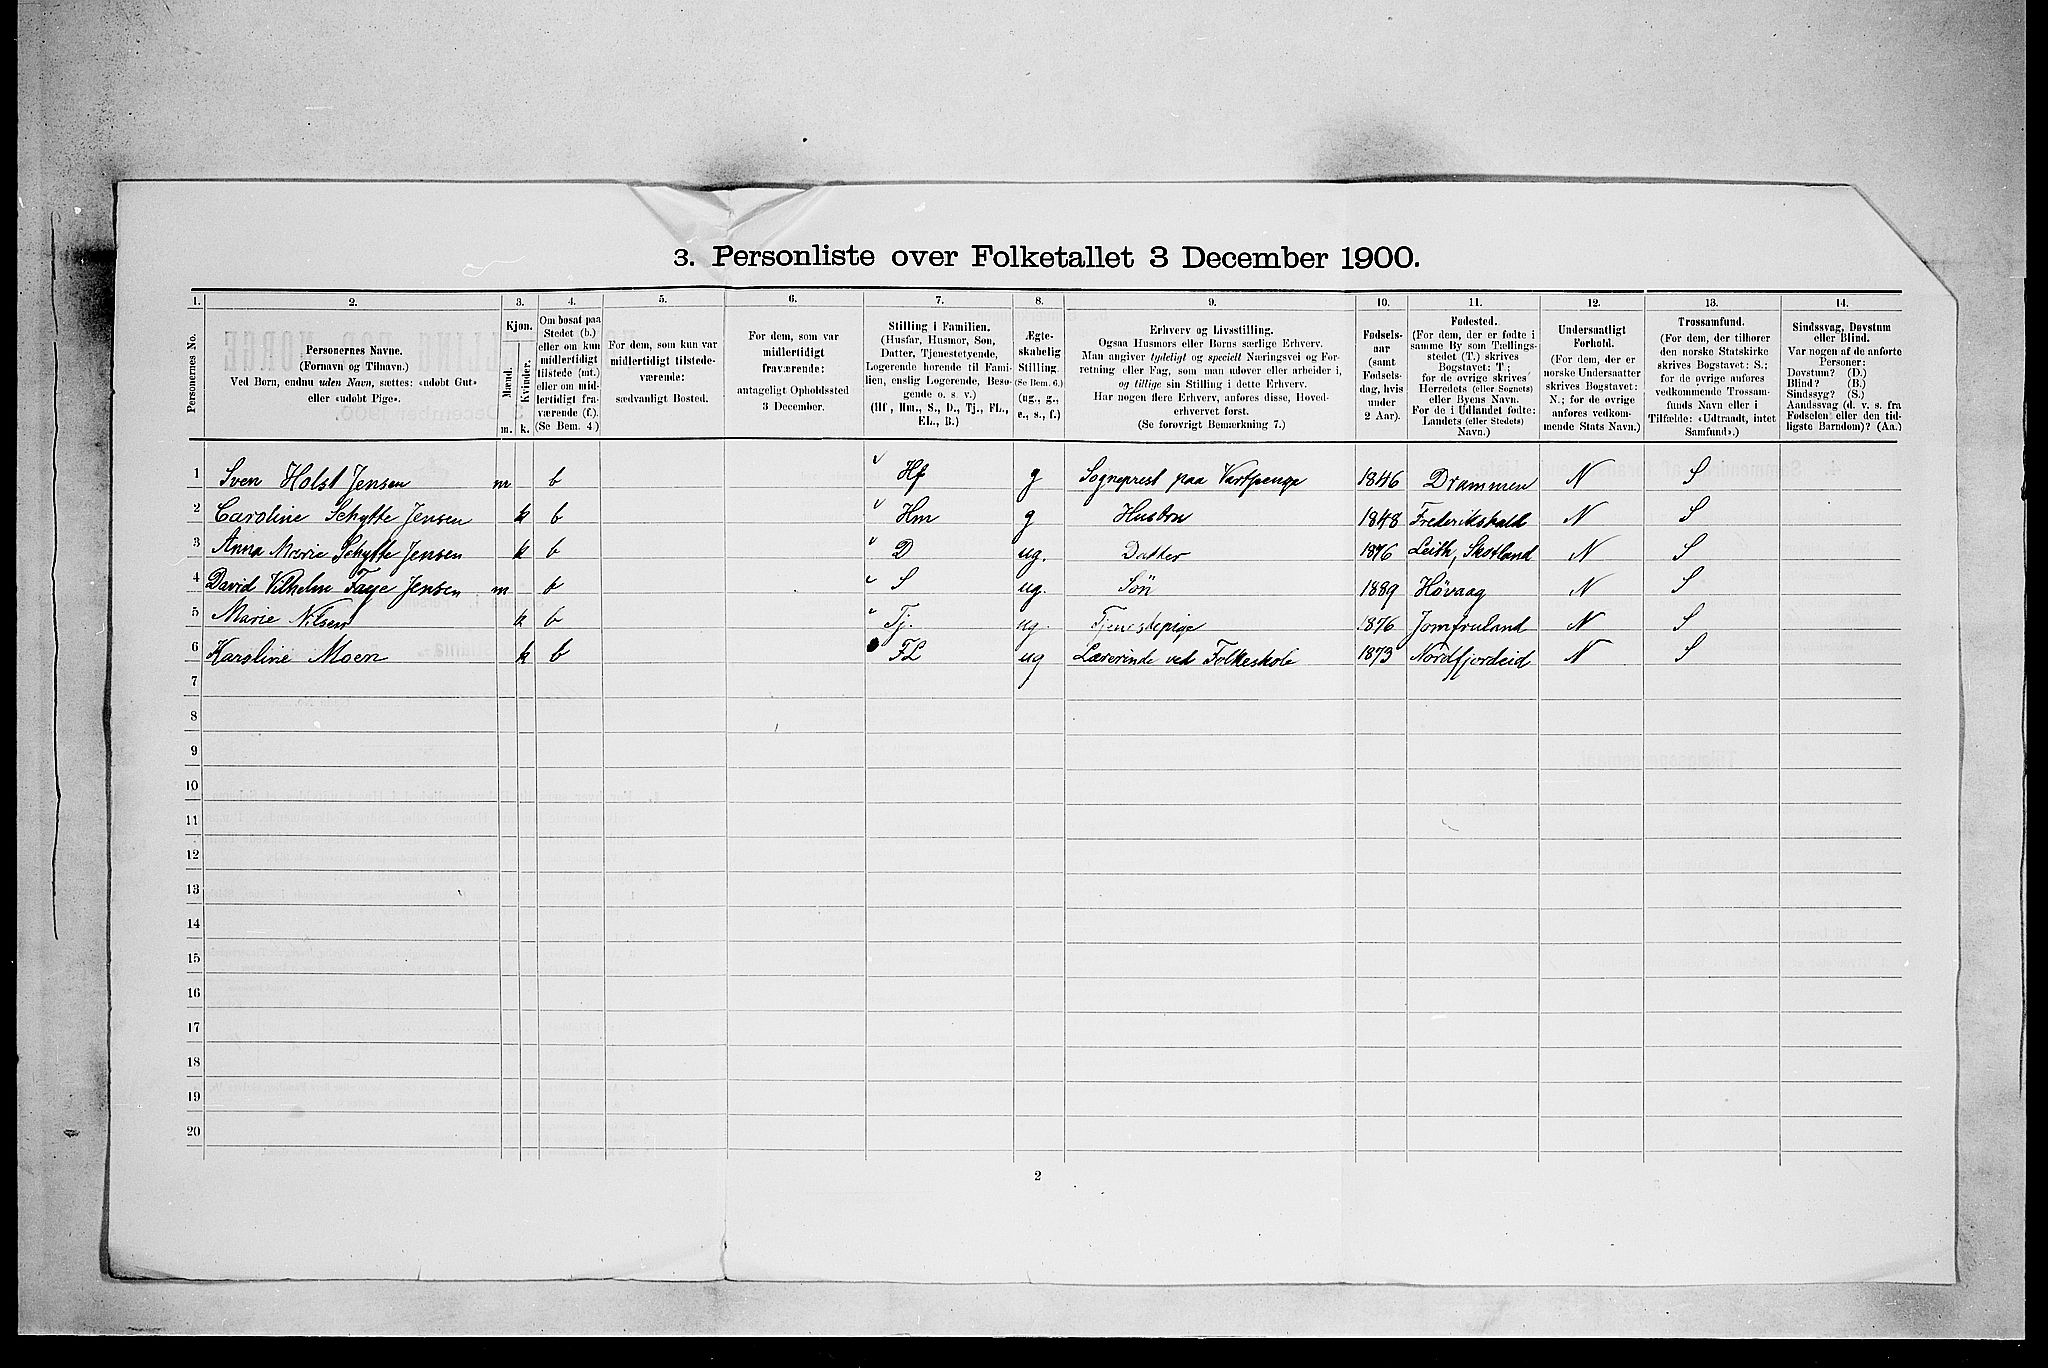 3. Personliste over Folketallet 3 December 1900.
1. 2. 3. 4. 5. 6. 7. 8. 9. 10. 11. 12. 13. 14.
Personernes No.
Personernes Navne.
(Fornavn og Tilnavn.)
Ved Børn, endnu uden Navn, sættes: «udøbt Gut»
eller «udøbt Pige».
Kjøn.
Mænd.
Kvinder.
m. k.
Om bosat paa
Stedet (b.)
eller om kun
midlertidigt
tilstede (mt.)
eller om mid-
lertidigt fra-
værende (f.).
(Se Bem. 4.)
For dem, som kun var
midlertidigt tilstede-
værende:
sædvanligt Bosted.
For dem, som var
midlertidigt
fraværende:
antageligt Opholdssted
3 December.
Stilling i Familien.
(Husfar, Husmor, Søn,
Datter, Tjenestetyende,
Logerende hørende til Fami-
lien, enslig Logerende, Besø-
gende o. s. v.)
(Hf., Hm., S., D., Tj., FL.,
EL., B.)
Ægte-
skabelig
Stilling.
(Se Bem. 6.)
(ug., g.,
e., s., f.)
Erhverv og Livsstilling.
Ogsaa Husmors eller Børns særlige Erhverv.
Man angiver tydeligt og specielt Næringsvei og For-
retning eller Fag, som man udøver eller arbeider i,
og tillige sin Stilling i dette Erhverv.
Har nogen flere Erhverv, anføres disse, Hoved-
erhvervet først.
(Se forøvrigt Bemærkning 7.)
Fødsels-
aar
(samt
Fødsels-
dag, hvis
under
2 Aar).
Fødested.
(For dem, der er fødte i
samme By som Tællings-
stedet (T.) skrives
Bogstavet: T;
for de øvrige skrives
Herredets (eller Sognets)
eller Byens Navn.
For de i Udlandet fødte:
Landets (eller Stedets)
Navn.)
Undersaatligt
Forhold.
(For dem, der er
norske Undersaatter
skrives Bogstavet:
N.; for de øvrige
anføres vedkom-
mende Stats Navn.)
Trossamfund.
(For dem, der tilhører
den norske Statskirke
skrives Bogstavet: S.;
for de øvrige anføres
vedkommende Trossam-
funds Navn eller i
Tilfælde: «Udtraadt, intet
Samfund».)
Sindssvag, Døvstum
eller Blind.
Var nogen af de anførte
Personer:
Døvstum? (D.)
Blind? (B.)
Sindssyg? (S.)
Aandssvag (d. v. s. fra
Fødselen eller den tid-
ligste Barndom)? (Aa.)
1 Sven Holst Jensen m b Hf g Sogneprest paa 1846 Drammen N S
2 Caroline Schytte Jensen k b Hm g Hustru 1848 Frederikshald N S
3 Anna Marie Schytte Jensen k b D ug. Datter 1876 Leith, Skotland N S
4 David Vilhelm Faye Jensen m b S ug. Søn 1889 Høvaag N S
5 Marie Nilsen k b Tj. ug. Tjenestepige 1876 Jomfruland N S
6 Karoline Moen k b FL ug Lærerinde ved Folkeskole 1873 Nordfjordeid N S
7
8
9
10
11
12
13
14
15
16
17
18
19
20
2